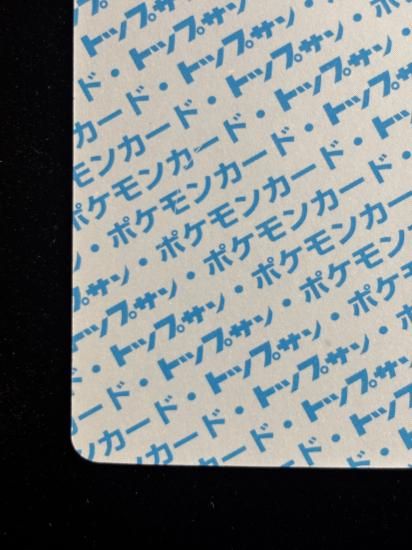 トップサン
ド・トップサン
カード・トップサン・
モンカード・トップサン・ポ
ポケモンカード・トップサン・
・ポケモンカード・トップ
・ポケモンカード・ト
サン・ポケモンカード・
プサン・ポケモンカー
トップサン・ポケモン
・トップサン・ポケモ
ド・トップサン・ポ
カード・トップサン・
ンカード・トップ